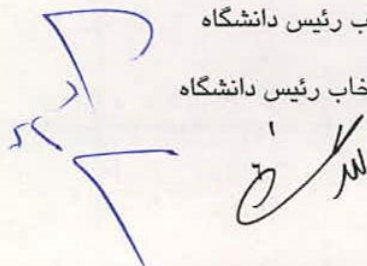 ب رئیس دانشگاه
خاب رئیس دانشگاه